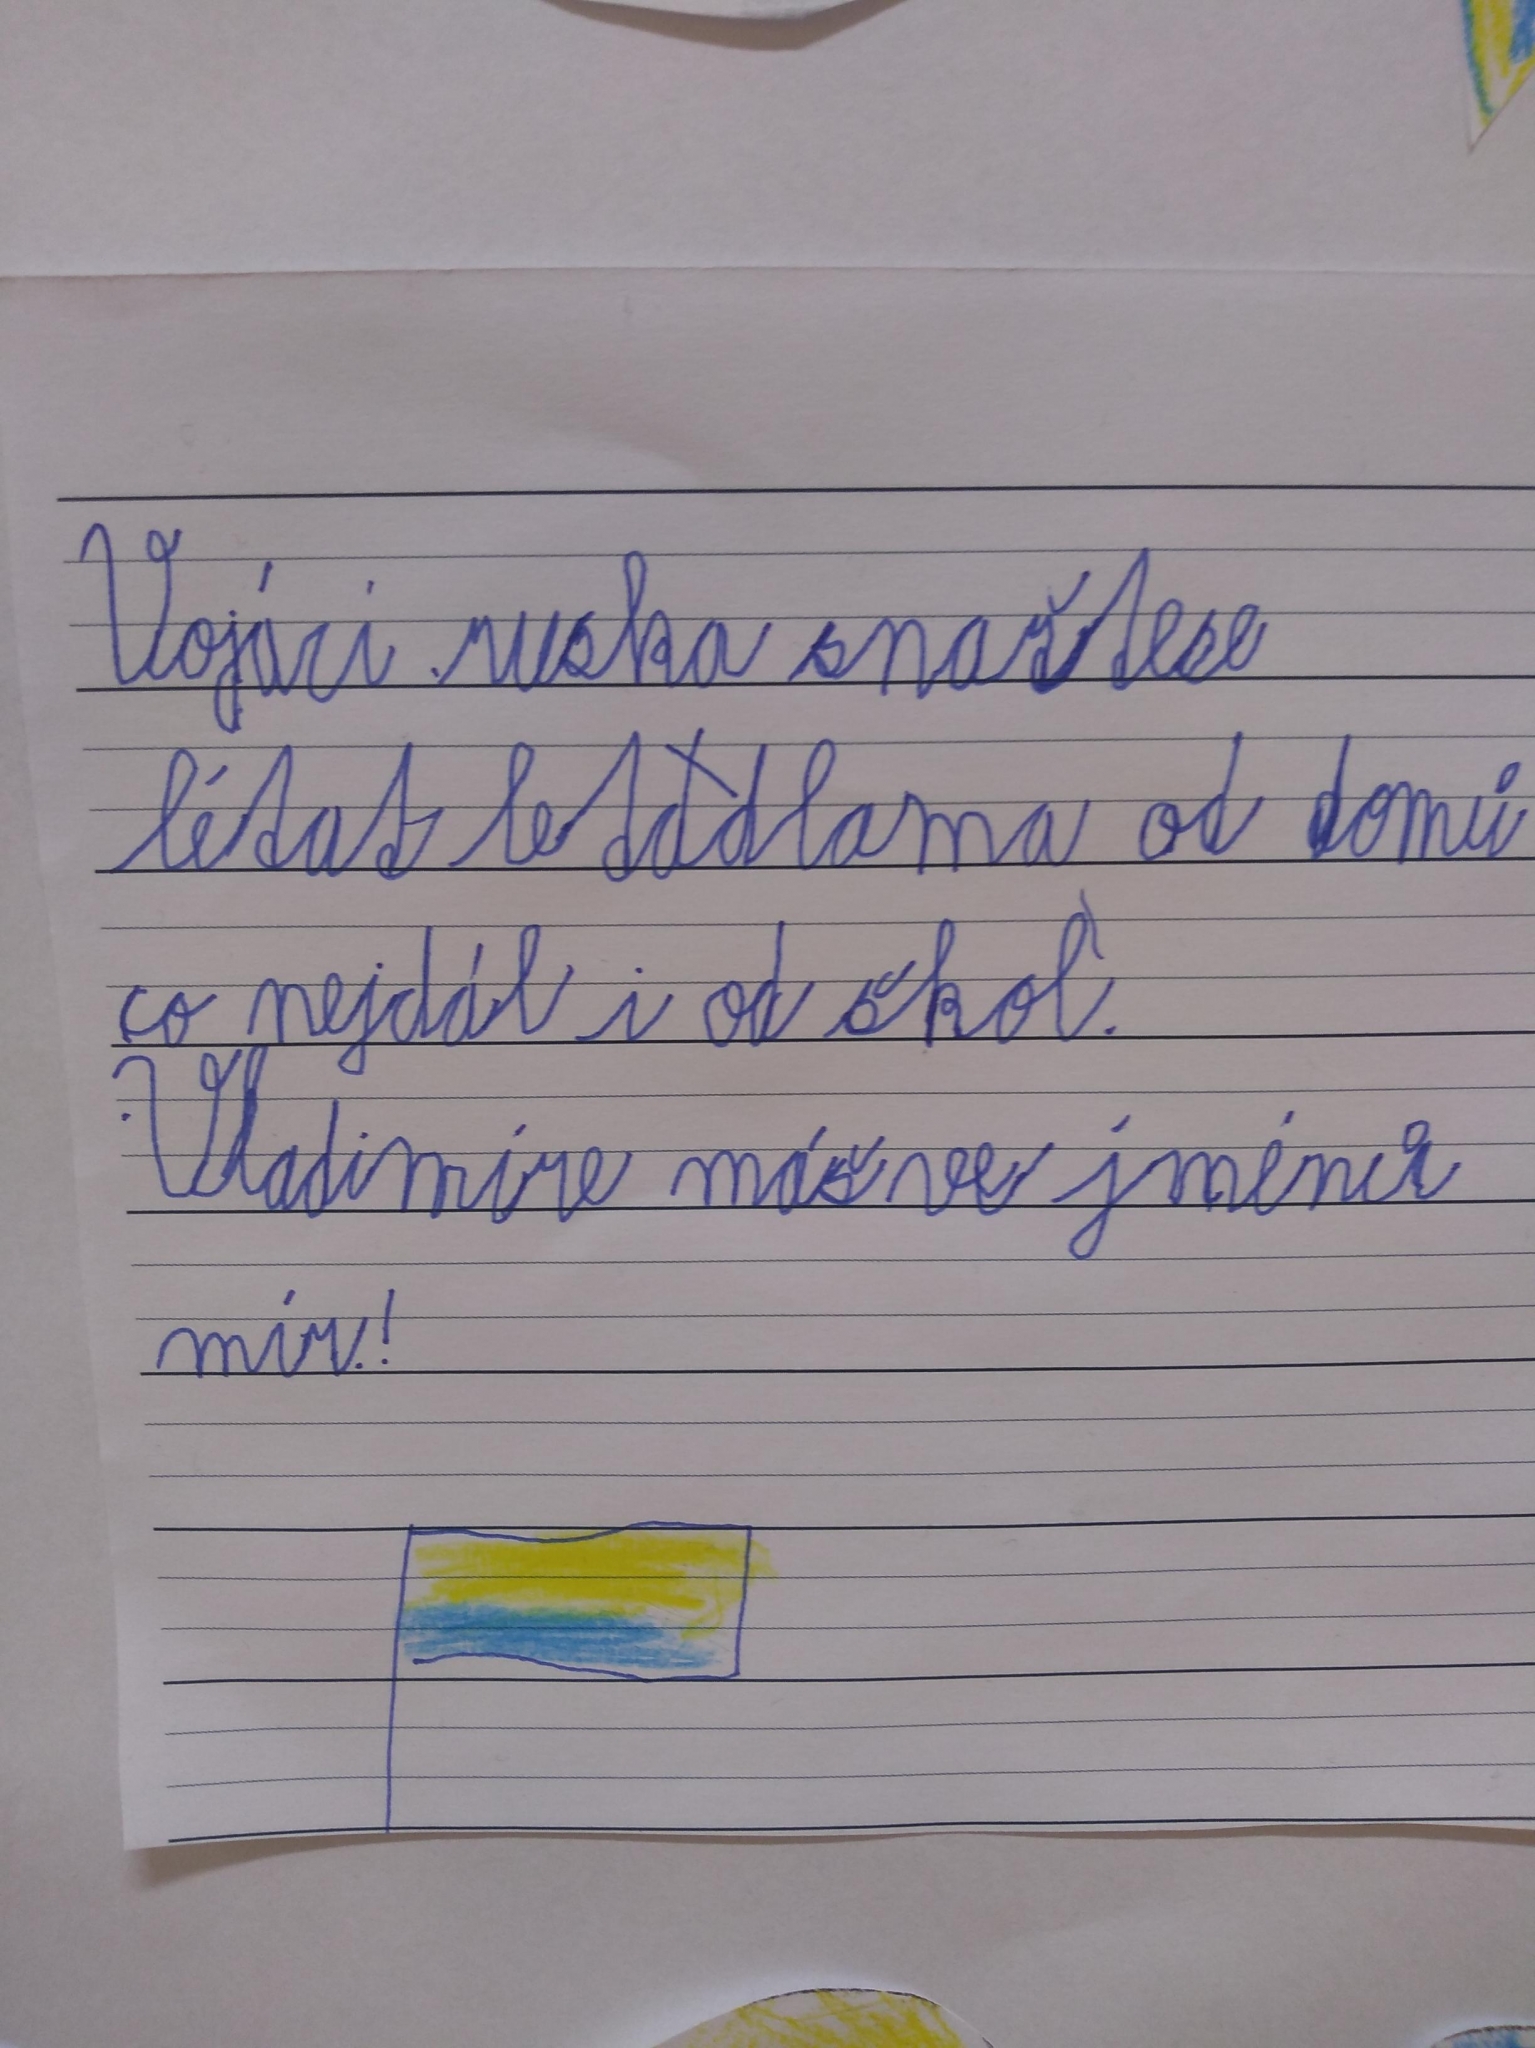 Vojáci ruska snaž tese
létat letadlama od domů
co nejdál i od škol.
Vladimíre máš ve jménu
mír!